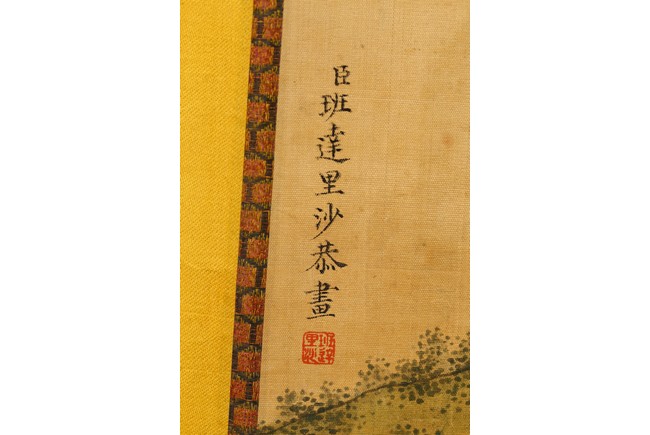 臣班達里沙恭畫
班達里沙